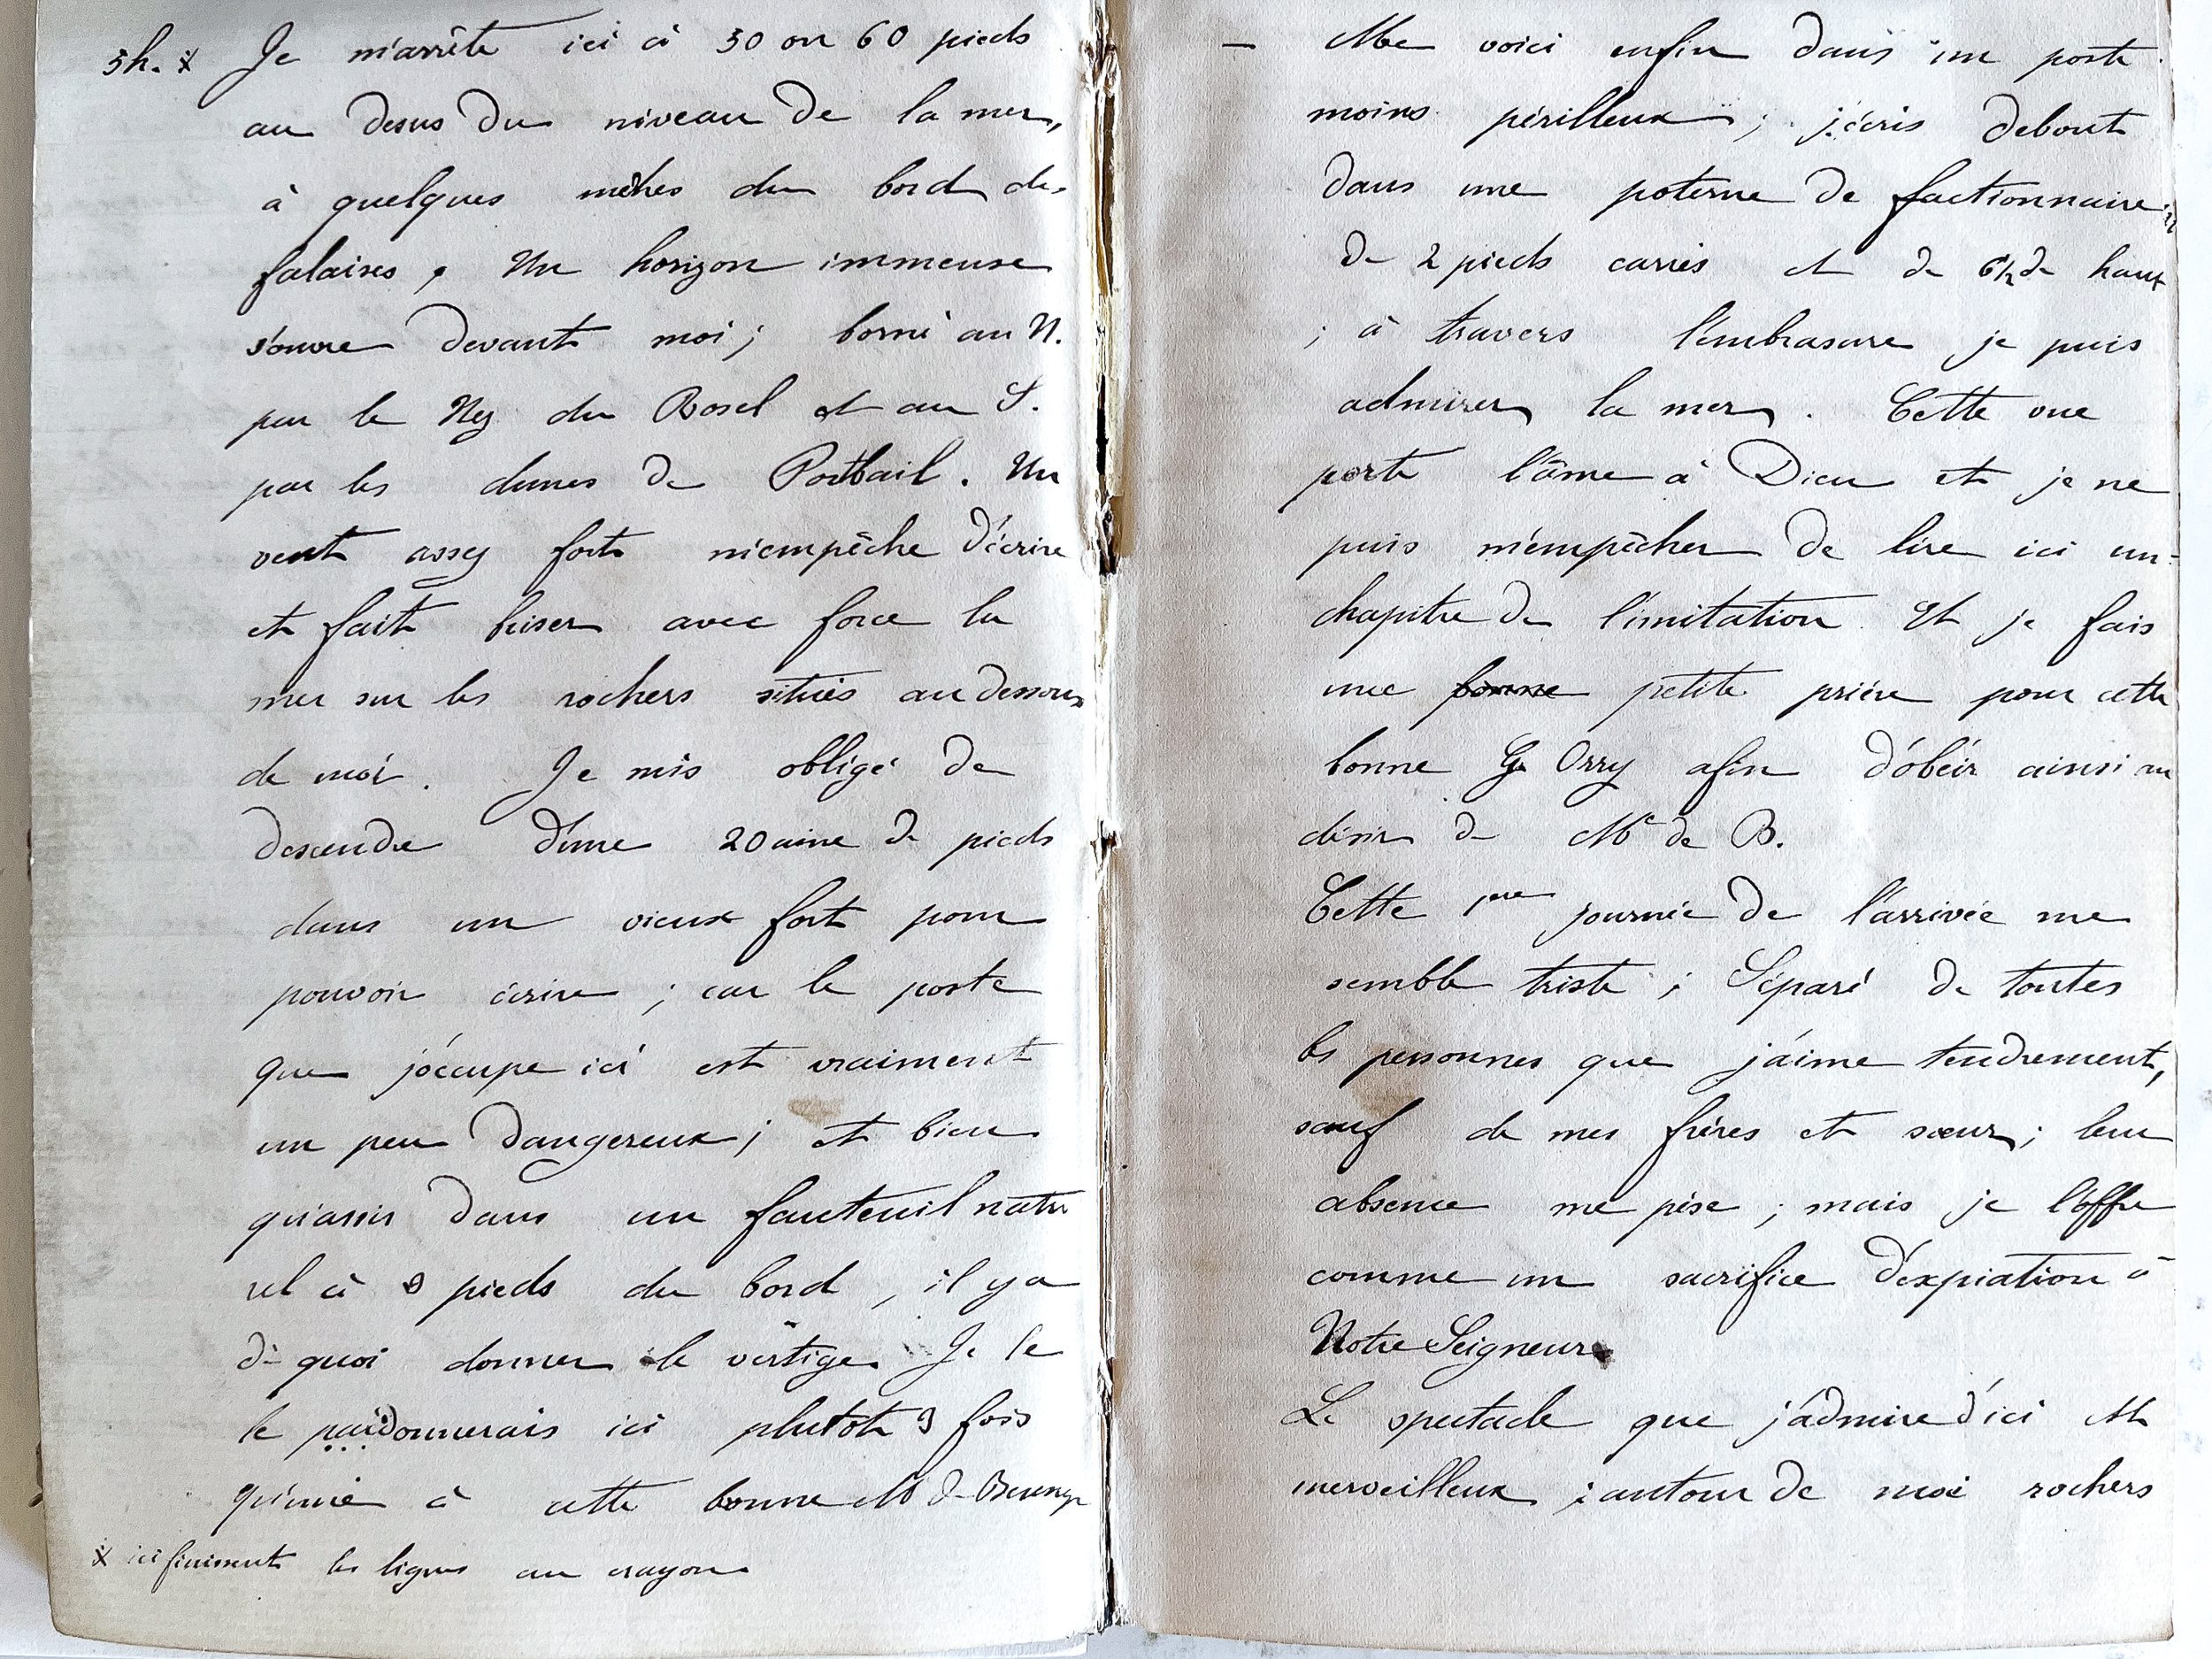 5h. x Je m'arrête ici à 50 ou 60 pieds
au desus du niveau de la mer,
à quelques mètres du bord des
falaises, Un horizon immense
s'ouvre devant moi; borné au N.
par le Nez du Rosel et au S.
par les dunes de Portbail. Un
vent assez fort m'empêche d'écrire
et fait briser avec force la
mer sur les rochers situés au dessous
de moi. Je suis obligé de
descendre d'une 20aine de pieds
dans un vieux fort pour
pouvoir écrire; car le poste
que j'occupe ici est vraiment
un peu dangereux; et bien
qu'assis dans un fauteuil natu
rel à pieds du bord, il y a
de quoi donner le vertige. Je le
le pardonnerais ici plutôt 3 fois
qu'une à cette bonne M de
x ici finissent les lignes au crayon
— Me voici enfin dans un poste
moins périlleux; j'écris debout
dans une poterne de factionnaire
de 2 pieds carrés et de 6 1/2 de haut
; à travers l'embrasure je puis
admirer la mer. Cette vue
porte l'âme à Dieu et je ne
puis m'empêcher de lire ici un
chapitre de l'imitation. Et je fais
une bonne petite prière pour cette
bonne G. Orry afin d'obéir ainsi au
désir de Me de B.
Cette 1ere journée de l'arrivée me
semble triste; Séparé de toutes
les personnes que j'aime tendrement,
sauf de mes frères et sœur; leur
absence me pèse; mais je l'offre
comme un sacrifice d'expiation à
Notre Seigneur.
Le spectacle que j'admire d'ici est
merveilleux; autour de moi rochers